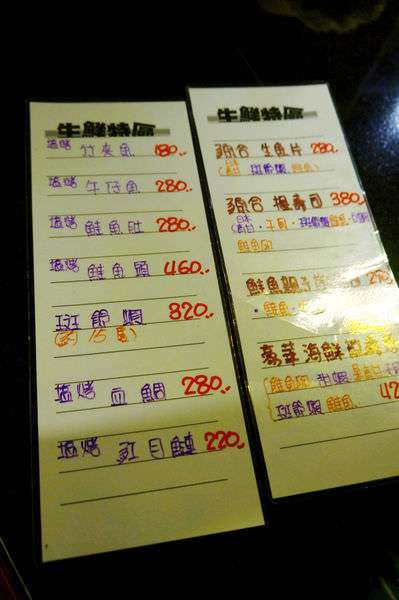 生鮮特區
塩烤 竹夾魚 180..
塩烤 午仔魚 280..
塩烤 鮭魚肚 280..
塩烤 鮭魚頭 460..
斑節蝦 820..
(約15尾)
塩烤 血鯛 280..
塩烤 紅目鰱 220..
生鮮特區
綜合 生魚片 280..
綜合 握壽司 380..
鮭魚卵
鮭魚親子 270
・鮭魚・
豪華海鮮
鮭魚卵 甜蝦
斑節蝦 鮭魚 42